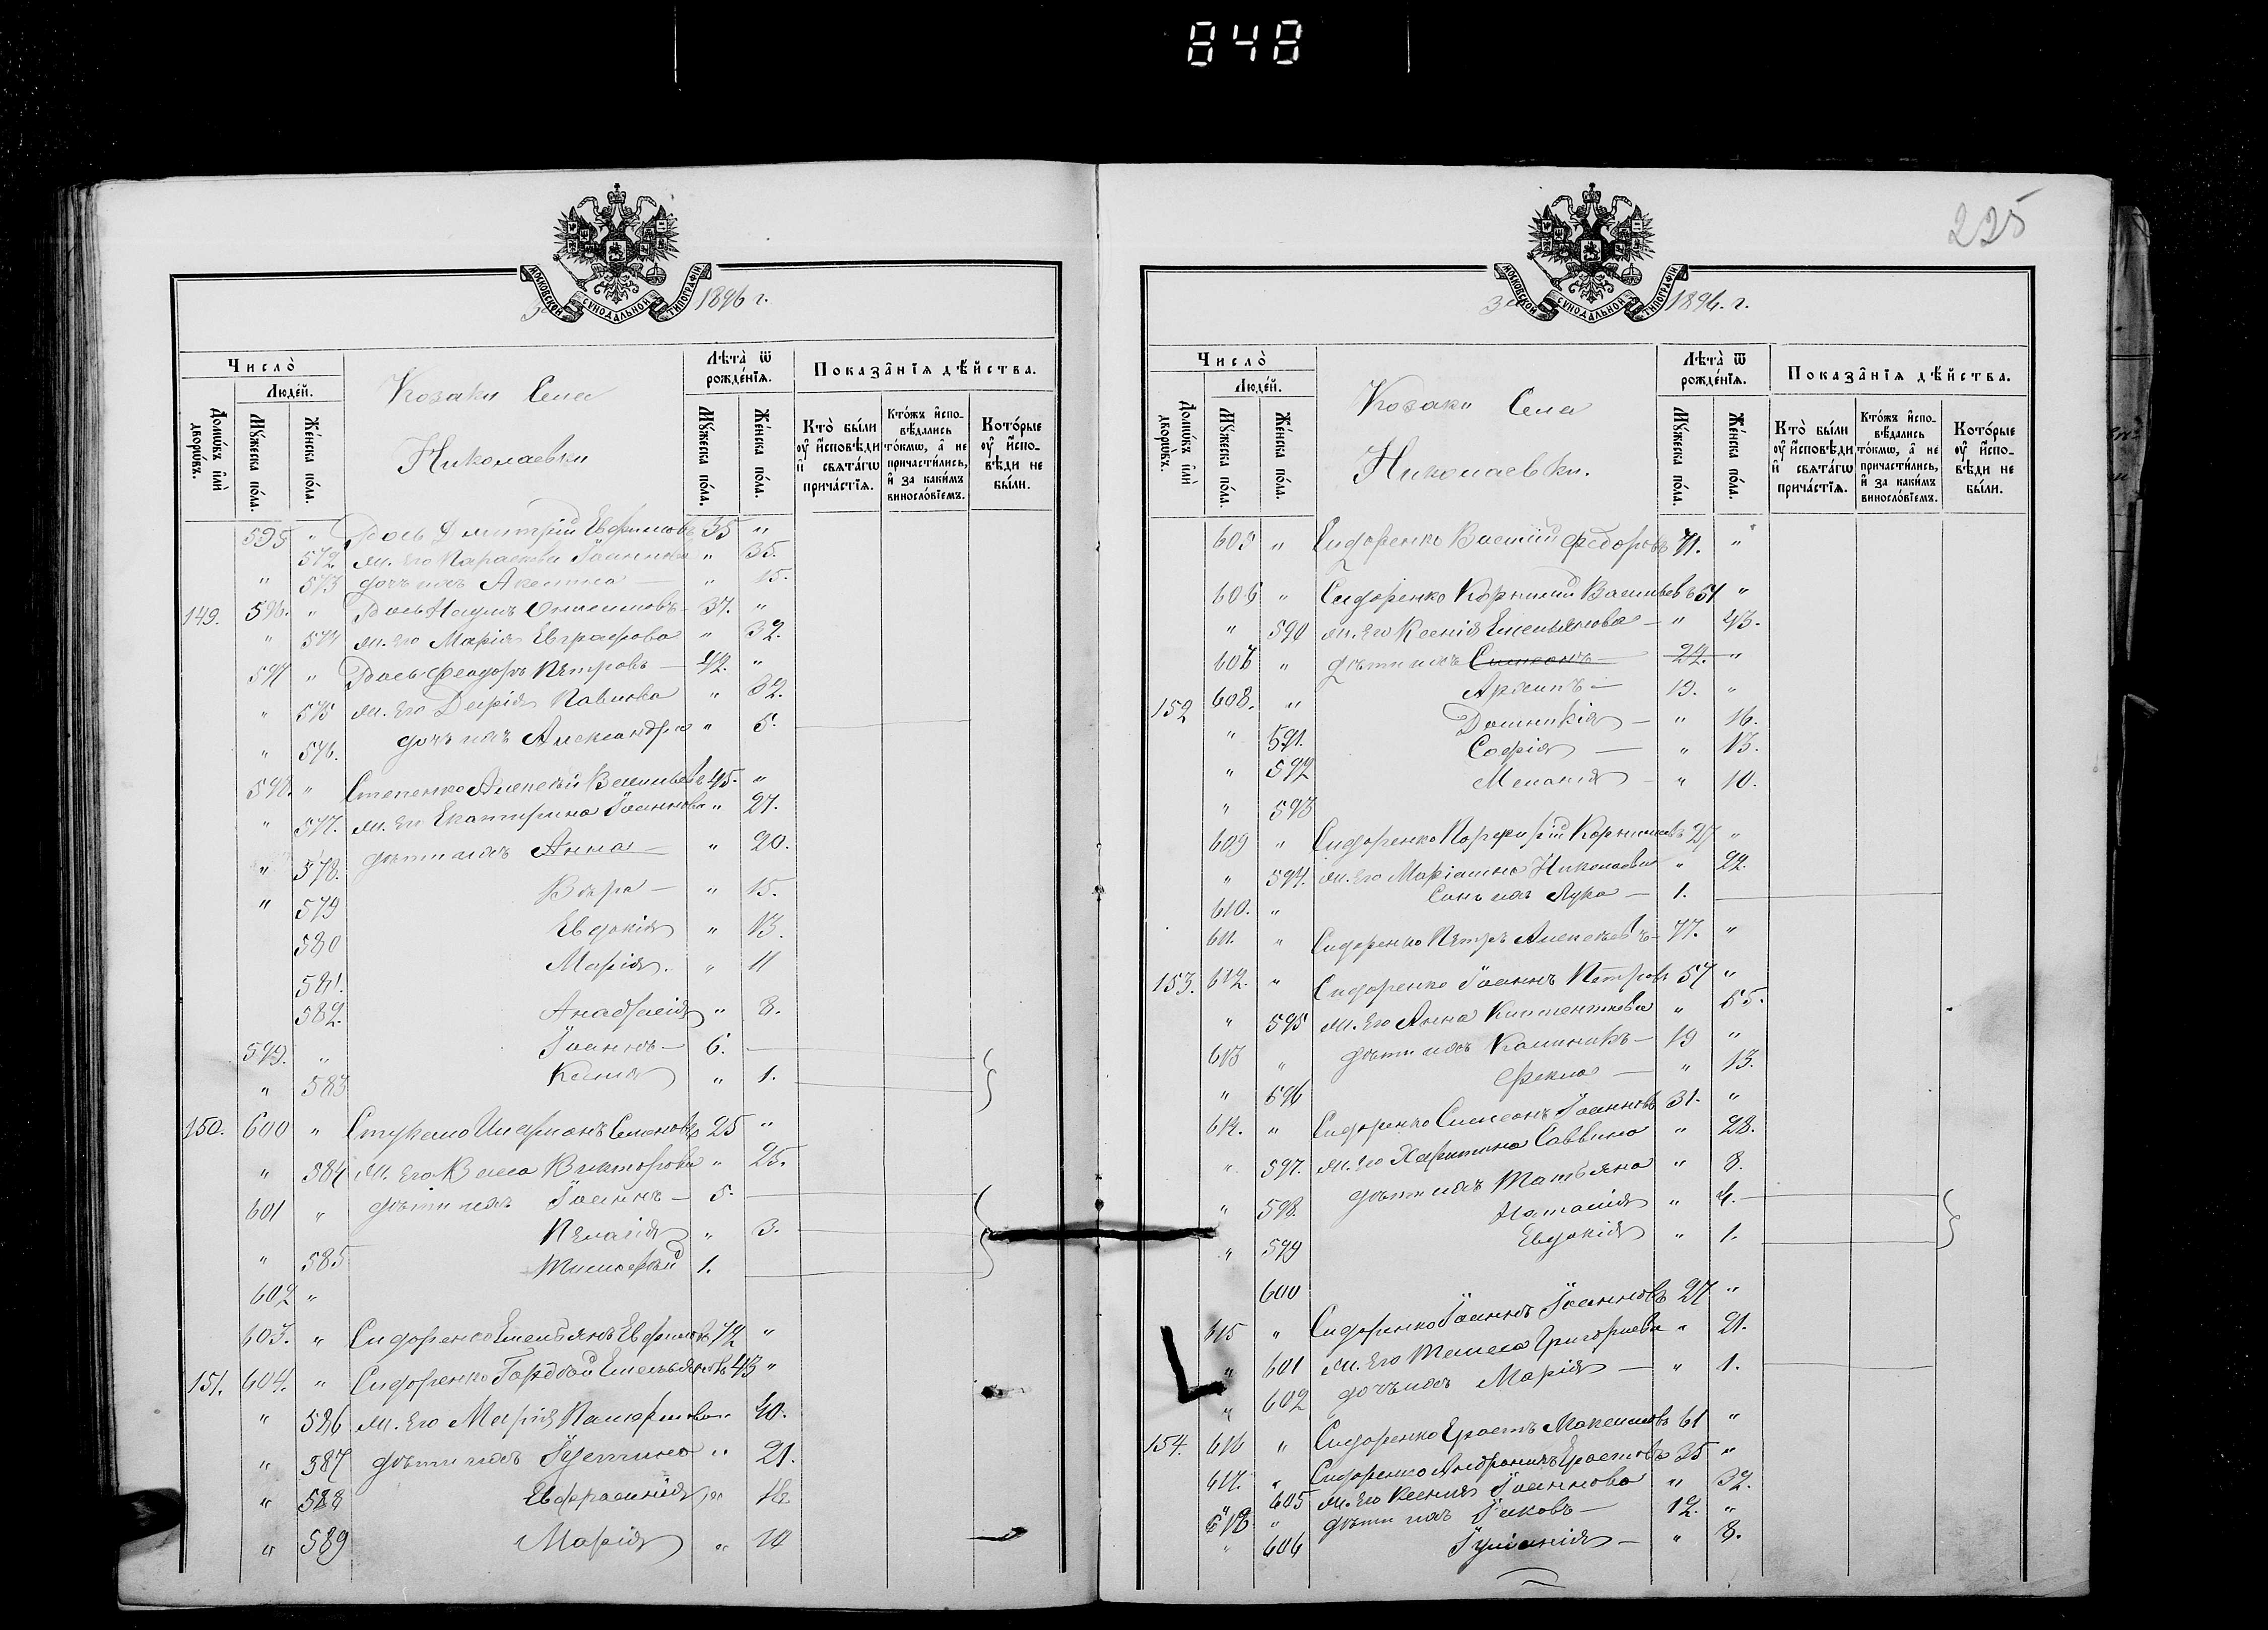 848
225
МОСКОВСКОЙ СѴНОДАЛЬНОЙ ТИПОГРАФІИ
За 1896 г.
Число̀
Люде́й.
Домѡ́въ и҆лѝ дворѡ́въ.
Мꙋ́жеска по́ла.
Же́нска по́ла.
Козаки Села
Николаевки
Лѣта̀ ѿ рожде́нїѧ.
Мꙋ́жеска по́ла.
Же́нска по́ла.
Показа̂нїѧ дѣ́йства.
Кто̀ бы́ли оу҆ и҆сповѣ́ди и҆ свѧта́гѡ прича́стїѧ.
Кто́жъ и҆спо-вѣ́дались то́кмѡ, а҆ не причасти́лись, и҆ за каки́мъ винослові́емъ.
Кото́рые оу҆ и҆спо-вѣ́ди не бы́ли.
595 " Дось Димитрій Евфимовъ 35 "
572 ж. его Параскева Іоаннова " 35.
" 573 дочь ихъ Акилина — " 15.
149. 596. " Дось Наумъ Онисимовъ 37. "
" 574 ж. его Марія Евграфова " 32.
597 " Дось Феодоръ Петровъ — 42. "
" 575 ж. его Дарія Павлова " 32.
" 576. дочь ихъ Александра " 5.
598. " Степенко Алексѣй Васильевъ 45. "
" 577. ж. его Екатерина Іоаннова " 27.
" 578. дѣти ихъ Анна — " 20.
" 579 Вѣра — " 15.
580 Евдокія " 13.
581. Марія. " 11
582. Анастасія " 8.
599. " Іоаннъ — 6.
" 583 Ксенія " 1.
150. 600 " Симеоновъ 25 "
" 584 ж. его Васса Викторова " 25.
601 " дѣти ихъ Іоаннъ — 5.
" 585 Пелагія " 3.
602 " Тимофей 1.
603. " Сидоренко Емельянъ Евфимовъ 72 "
151. 604. " Сидоренко Гордѣй Емельяновъ 43 "
" 586 ж. его Марія Памфилова " 40.
" 587 дѣти ихъ Іустина " 21.
" 588 Евфросинія "
" 589 Марія " 14
За 1896. г.
Число̀
Люде́й.
Домѡ́въ и҆лѝ дворѡ́въ.
Мꙋ́жеска по́ла.
Же́нска по́ла.
Козаки Села
Николаевки.
Лѣта̀ ѿ рожде́нїѧ.
Мꙋ́жеска по́ла.
Же́нска по́ла.
Показа̂нїѧ дѣ́йства.
Кто̀ бы́ли оу҆ и҆сповѣ́ди и҆ свѧта́гѡ прича́стїѧ.
Кто́жъ и҆спо-вѣ́дались то́кмѡ, а҆ не причасти́лись, и҆ за каки́мъ винослові́емъ.
Кото́рые оу҆ и҆спо-вѣ́ди не бы́ли.
605 " Сидоренко Василій Федоровъ 71. "
606 " Сидоренко Корнилій Васильевъ 51 "
" 590 ж. его Ксенія Емельянова — " 43.
607 " дѣти ихъ Симеонъ 22. "
152 608. " Архипъ — 19. "
" 591. Домникія — " 16.
" 592 Софія — " 13.
" 593 Меланія — " 10.
609 " Сидоренко Порфирій Корниліевъ 27 "
" 594. ж. его Маріамна Николаева " 22.
610. " Сынъ ихъ Лука — 1.
611. " Сидоренко Петръ Алексѣевъ — 77. "
153. 612. " Сидоренко Іоаннъ Петровъ 57 "
" 595 ж. его Анна Климентіева " 55.
613 " дѣти ихъ Калиникъ — 19 "
" 596 Фекла — " 13.
614. " Сидоренко Симеонъ Іоанновъ 31. "
" 597. ж. его Харитина Саввина " 28.
" 598. дѣти ихъ Татьяна " 8.
" 599 Наталія " 4.
600 Евдокія " 1.
615 " Сидоренко Іоаннъ Іоанновъ 27 "
" 601 ж. его Григоріева " 21.
" 602 дочь ихъ Марія — " 1.
154. 616 " Сидоренко Ерастъ Максимовъ 61 "
617. " Сидоренко Андроникъ Ерастовъ 35 "
605 ж. его Ксенія Іоаннова " 32.
618 " дѣти ихъ Іаковъ — 12. "
" 606 Іуліанія — " 8.